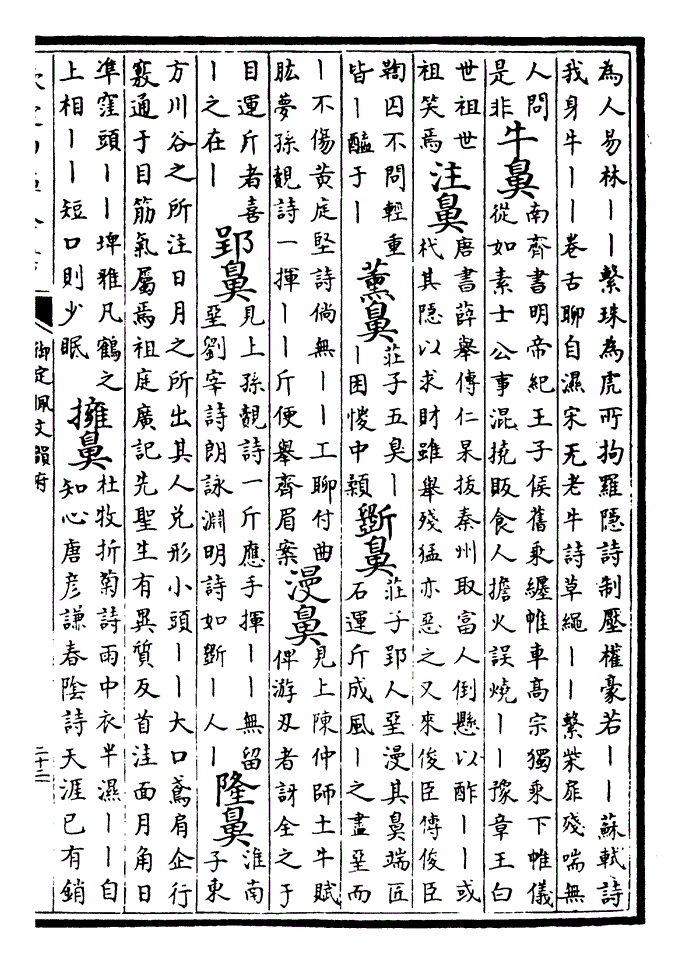 為人易林丨丨繫珠為虎所拘羅隱詩制壓權豪若丨丨蘇軾詩
我身牛丨丨卷舌聊自濕宋无老牛詩草繩丨丨繫柴扉殘喘無
人問
是非
牛鼻
南齊書明帝紀王子侯舊乘纏帷車高宗獨乘下帷儀
從如素士公事混撓販食人擔火誤燒丨丨豫章王白
世祖世
祖笑焉
注鼻
唐書薛舉傳仁杲拔秦州取富人倒懸以酢丨丨或
杙其隱以求財雖舉殘猛亦惡之又來俊臣傳俊臣
鞫囚不問輕重
皆丨醯于丨
薰鼻
莊子五臭丨
丨困惾中顙
斲鼻
莊子郢人堊漫其鼻端匠
石運斤成風丨之盡堊而
丨不傷黃庭堅詩倘無丨丨工聊付曲
肱夢孫覿詩一揮丨丨斤便舉齊眉案
漫鼻
見上陳仲師土牛賦
俾游刃者訝全之于
目運斤者喜
丨之在丨
郢鼻
見上孫覿詩一斤應手揮丨丨無留
堊劉宰詩朗詠淵明詩如斲丨人丨
隆鼻
淮南
子東
方川谷之所注日月之所出其人兌形小頭丨丨大口鳶肩企行
竅通于目筋氣屬焉祖庭廣記先聖生有異質反首洼面月角日
準窪頭丨丨埤雅凡鶴之
上相丨丨短口則少眠
擁鼻
杜牧折菊詩雨中衣半濕丨丨自
知心唐彥謙春陰詩天涯已有銷
御定佩文韻府
二十二